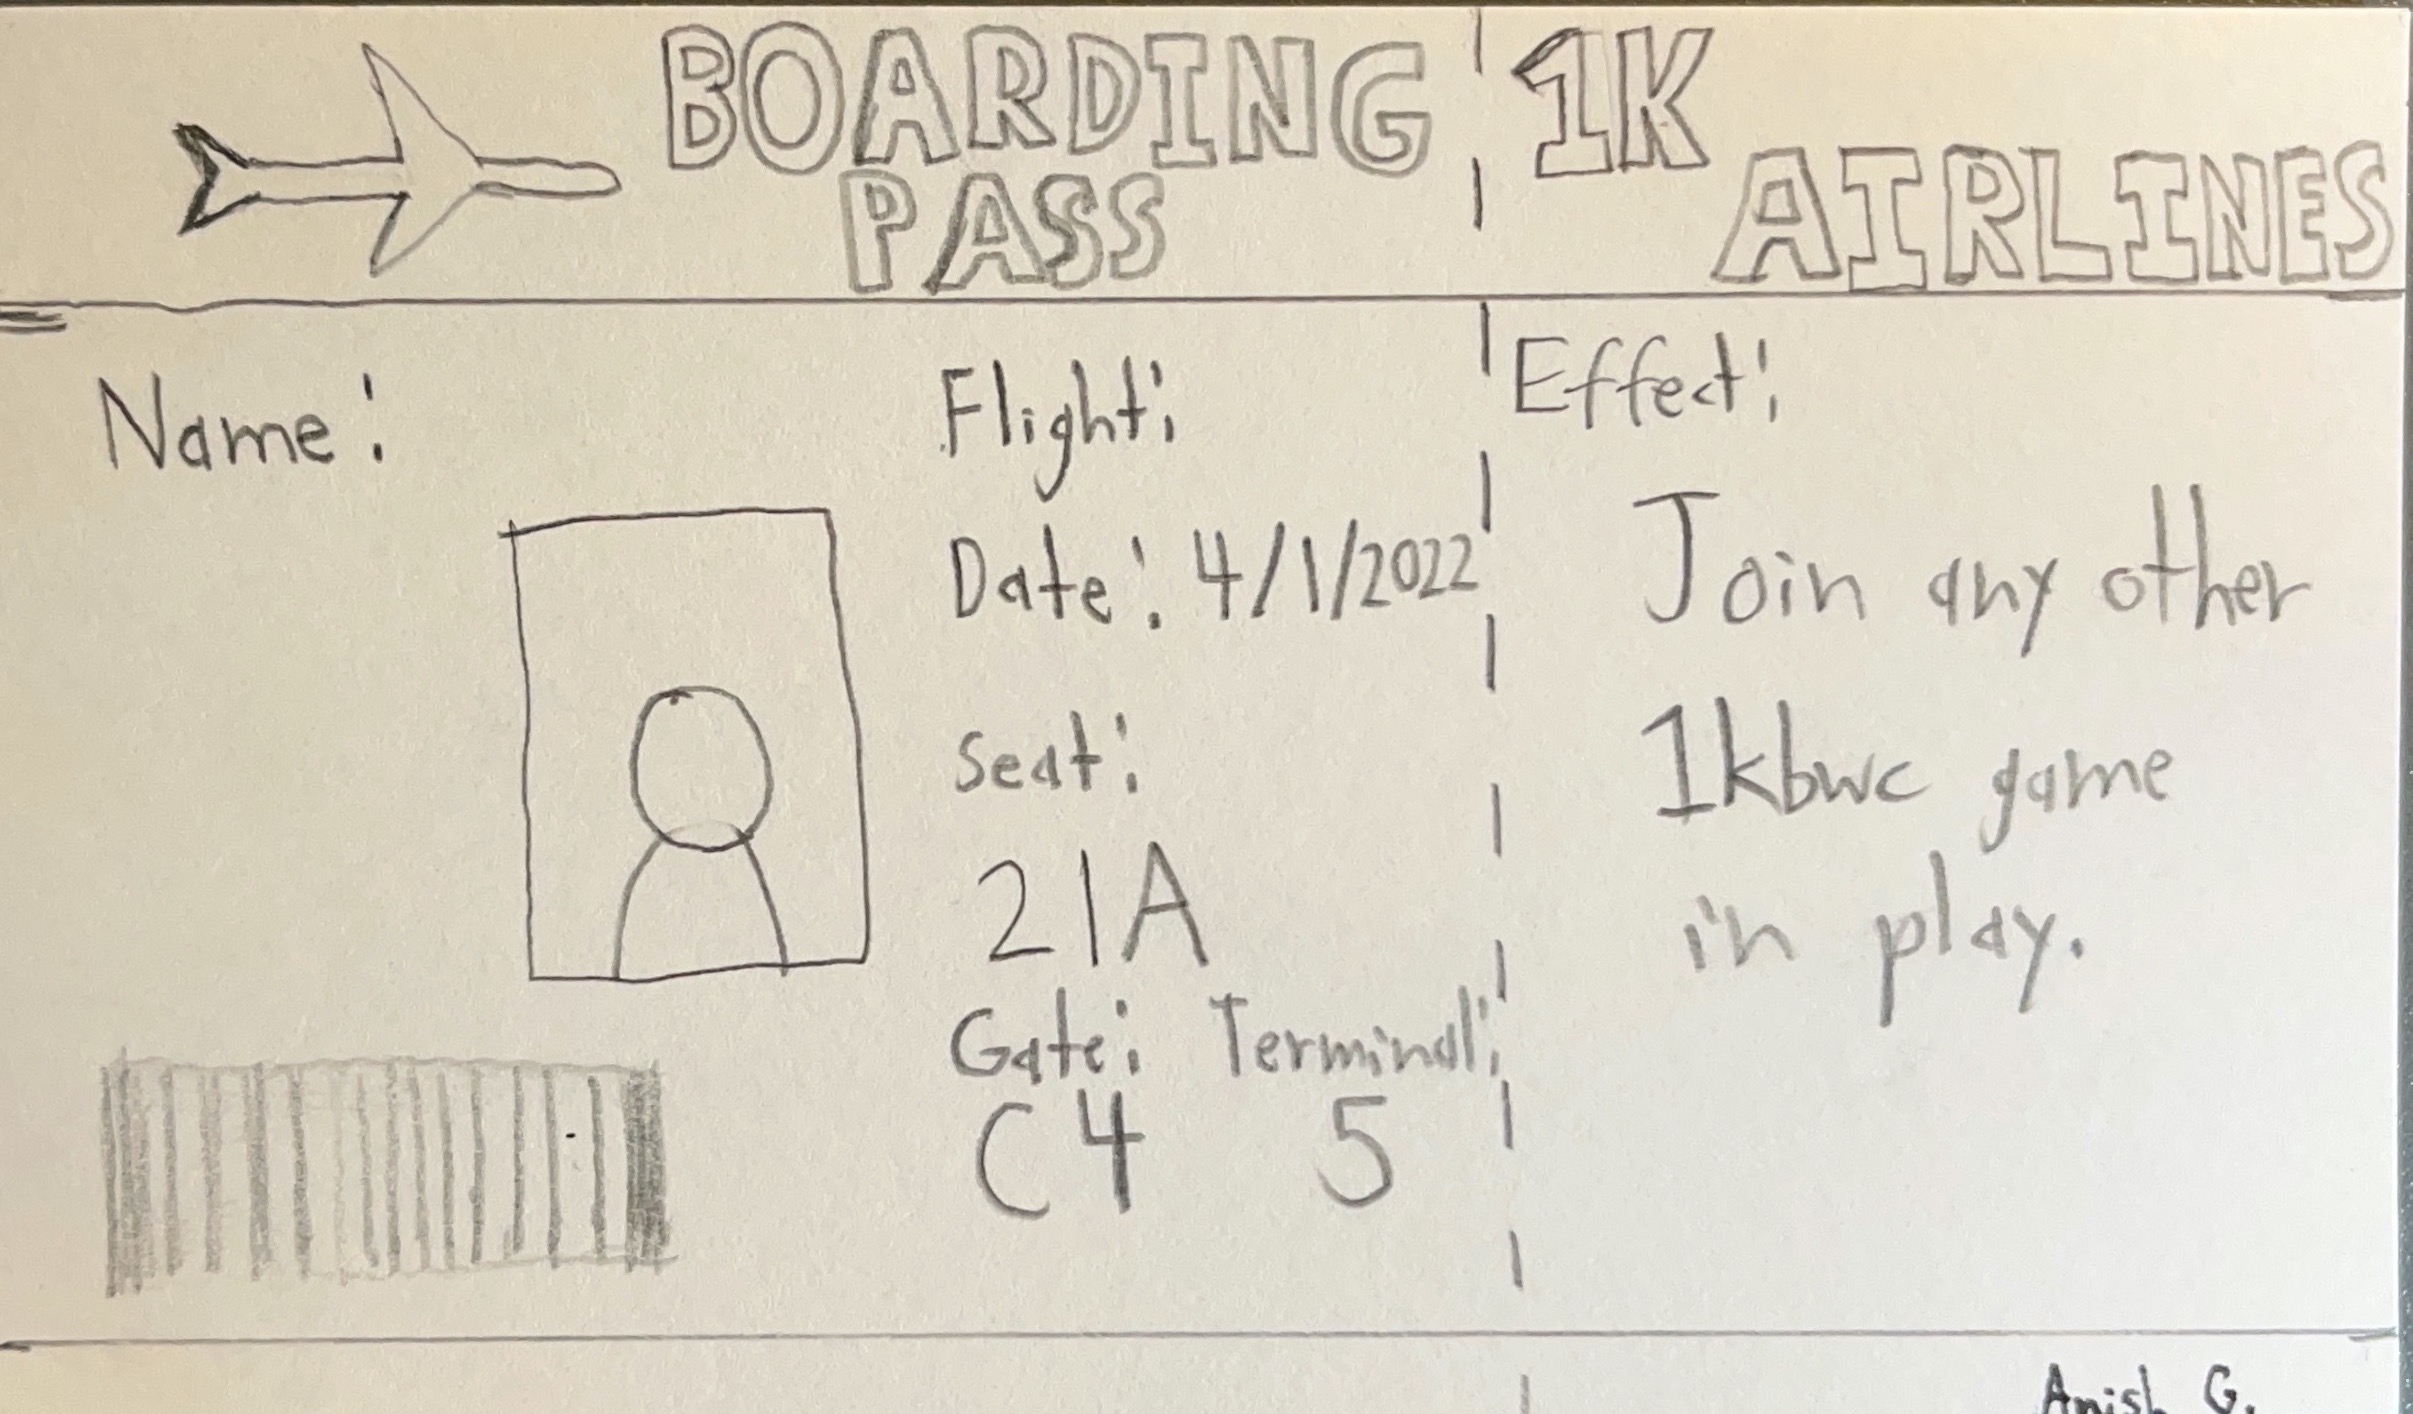 BOARDING
PASS
1K
AIRLINES
Name:
Flight:
Date: 4/1/2022
Seat:
21A
Gate: Terminal:
C4 5
Effect:
Join any other
1kbwc game
in play.
Anish G.